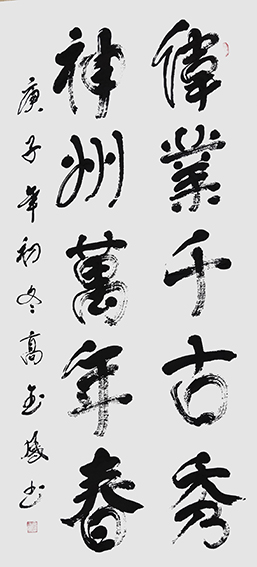 偉業千古秀
神州萬年春
庚子年初冬高玉盛書